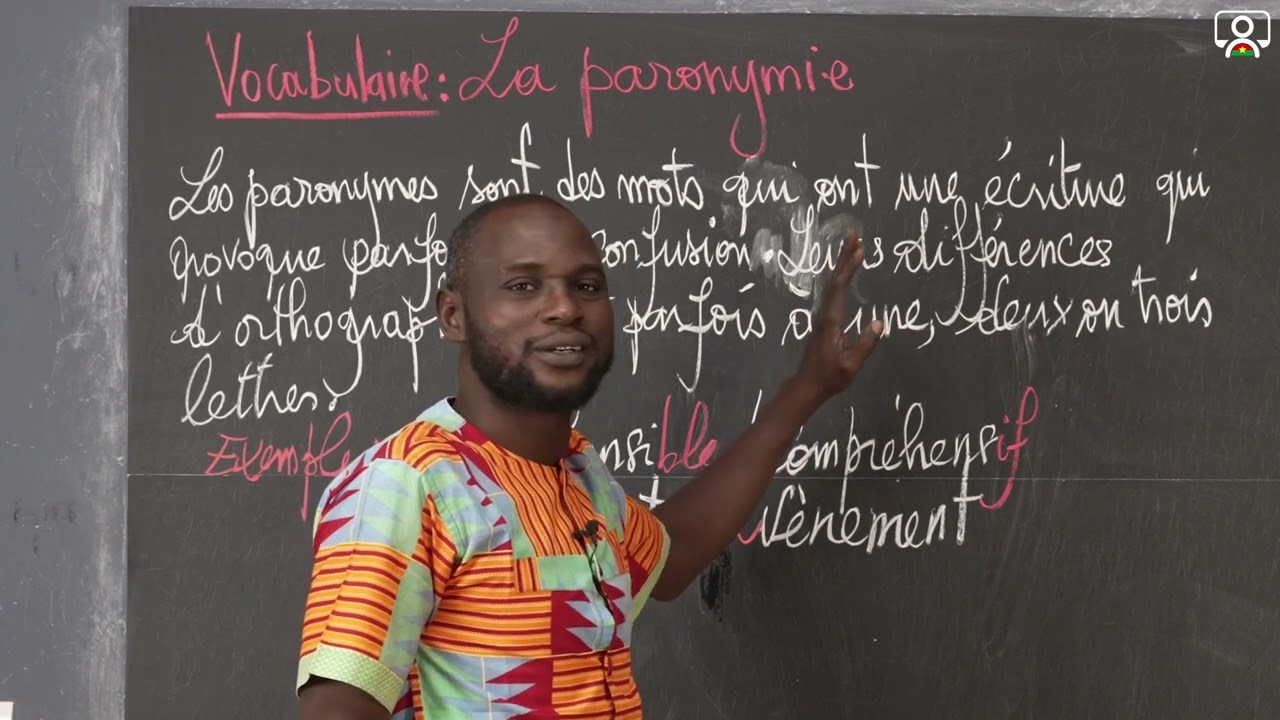 Vocabulaire : La paronymie
Les paronymes sont des mots qui ont une écriture qui
provoque parfo confusion. Leurs différences
d'orthograp parfois à une, deux ou trois
lettres.
Exemple nsible compréhensif
t vènement